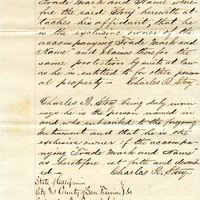 Trade Mark and Name
fore the said Story hereunto at
taches his affidavit, that he
is the exclusive owner of the
accompanying Trade Mark and
Name and claims therefor the
same protection by suits at law
as he is entitled to for other person
al property — Charles R. Story
Charles R. Story being duly sworn
says he is the person named in
and who subscribed to the foregoing
Instrument and that he is the
exclusive owner of the accompa-
nying "Trade Mark and Name"
as heretofore set forth and
Charles R. Story
State of California
City & County of San Francisco } SS